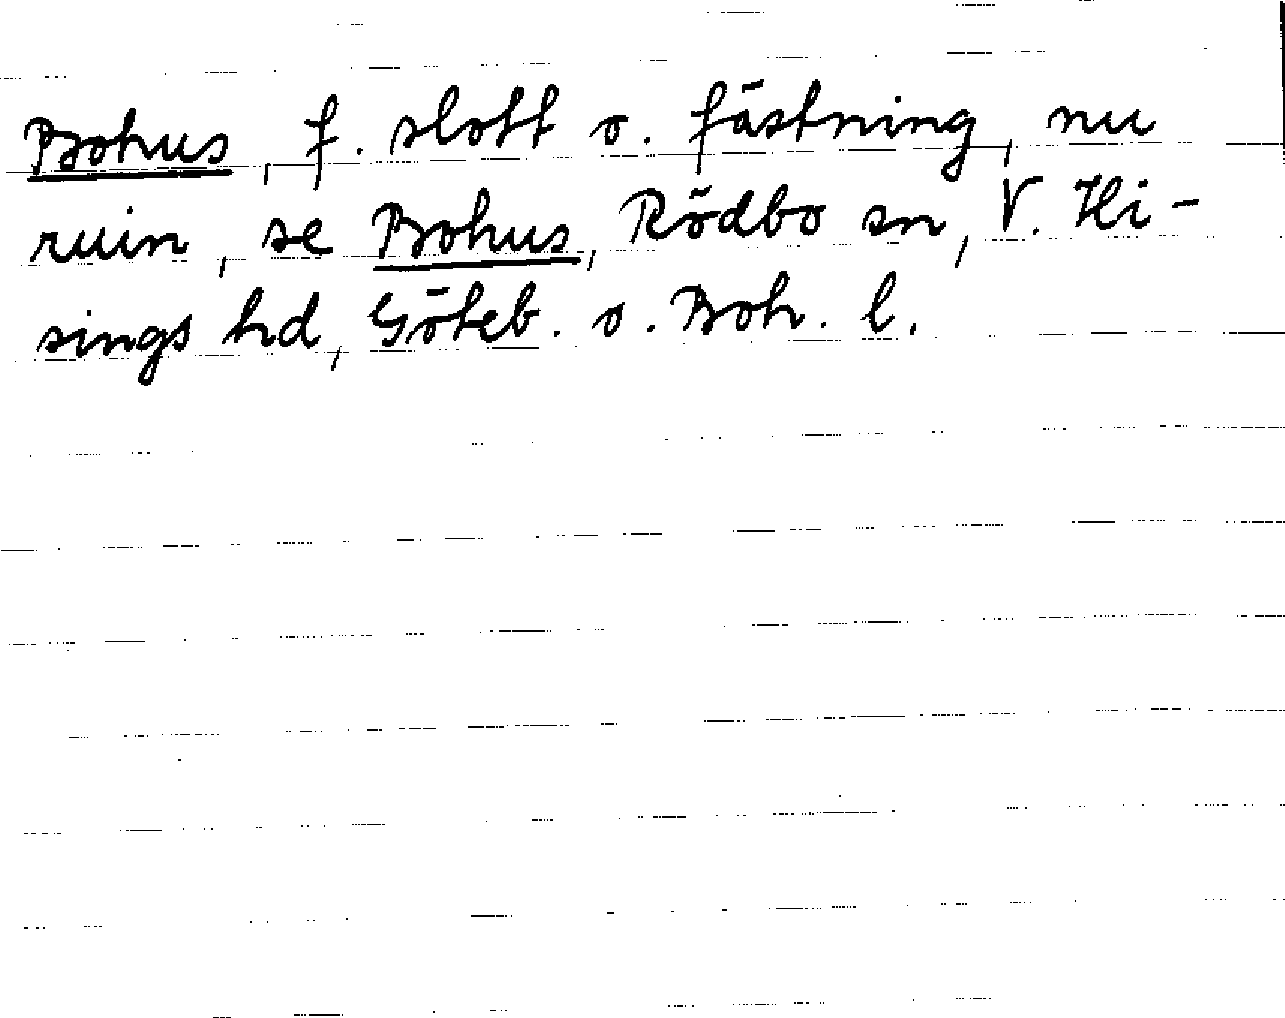 Bohus, f. slott o. fästning, nu
ruin, se Bohus, Rödbo sn, V. Hi-
sings hd, Göteb. o. Boh. l.